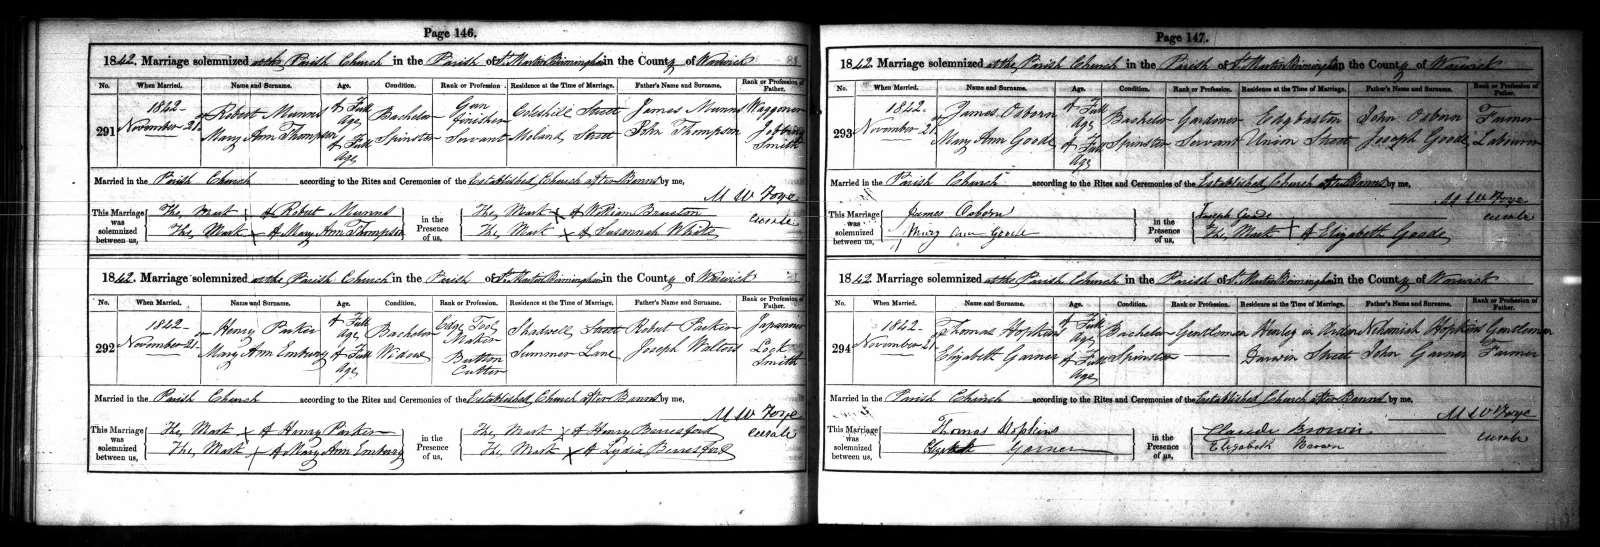 Page 146.
1842. Marriage solemnized at the Parish Church in the Parish of St Martin Birmingham in the County of Warwick
No. When Married. Name and Surname. Age. Condition. Rank or Profession. Residence at the Time of Marriage. Father's Name and Surname. Rank or Profession of Father.
291 1842 November 21. Robert Munns of Full Age Bachelor Gun Finisher Coleshill Street James Munns Waggoner
Mary Ann Thompson of Full Age Spinster Servant Moland Street John Thompson Smith
Married in the Parish Church according to the Rites and Ceremonies of the Established Church after Banns by me,
M W Foye
Curate
This Marriage was solemnized between us,
The Mark X of Robert Munns
The Mark X of Mary Ann Thompson
in the Presence of us,
The Mark X of William
The Mark X of Susannah White
1842. Marriage solemnized at the Parish Church in the Parish of St Martin Birmingham in the County of Warwick
No. When Married. Name and Surname. Age. Condition. Rank or Profession. Residence at the Time of Marriage. Father's Name and Surname. Rank or Profession of Father.
292 1842 November 21. Henry Parker of Full Age Bachelor Edge Tool Maker Shadwell Street Robert Parker Japanner
Mary Ann Embury of Full Age Widow Button Cutter Summer Lane Joseph Walters Lock Smith
Married in the Parish Church according to the Rites and Ceremonies of the Established Church after Banns by me,
M W Foye
Curate
This Marriage was solemnized between us,
The Mark X of Henry Parker
The Mark X of Mary Ann Embury
in the Presence of us,
The Mark X of Henry Beresford
The Mark X of Lydia Beresford
Page 147.
1842. Marriage solemnized at the Parish Church in the Parish of St Martin Birmingham in the County of Warwick
No. When Married. Name and Surname. Age. Condition. Rank or Profession. Residence at the Time of Marriage. Father's Name and Surname. Rank or Profession of Father.
293 1842 November 21. James Osborn of Full Age Bachelor Gardener Edgbaston John Osborn Farmer
Mary Ann Goode of Full Age Spinster Servant Union Street Joseph Goode Labourer
Married in the Parish Church according to the Rites and Ceremonies of the Established Church after Banns by me,
M W Foye
Curate
This Marriage was solemnized between us,
James Osborn
Mary Ann Goode
in the Presence of us,
Joseph Goode
The Mark X of Elizabeth Goode
1842. Marriage solemnized at the Parish Church in the Parish of St Martin Birmingham in the County of Warwick
No. When Married. Name and Surname. Age. Condition. Rank or Profession. Residence at the Time of Marriage. Father's Name and Surname. Rank or Profession of Father.
294 1842 November 21 Thomas Hopkins of Full Age Bachelor Gentleman Henley in Arden Nehemiah Hopkins Gentleman
Elizabeth Garner of Full Age Spinster Darwin Street John Garner Farmer
Married in the Parish Church according to the Rites and Ceremonies of the Established Church after Banns by me,
M W Foye
Curate
This Marriage was solemnized between us,
Thomas Hopkins
Elizabeth Garner
in the Presence of us,
Claude Brown
Elizabeth Brown